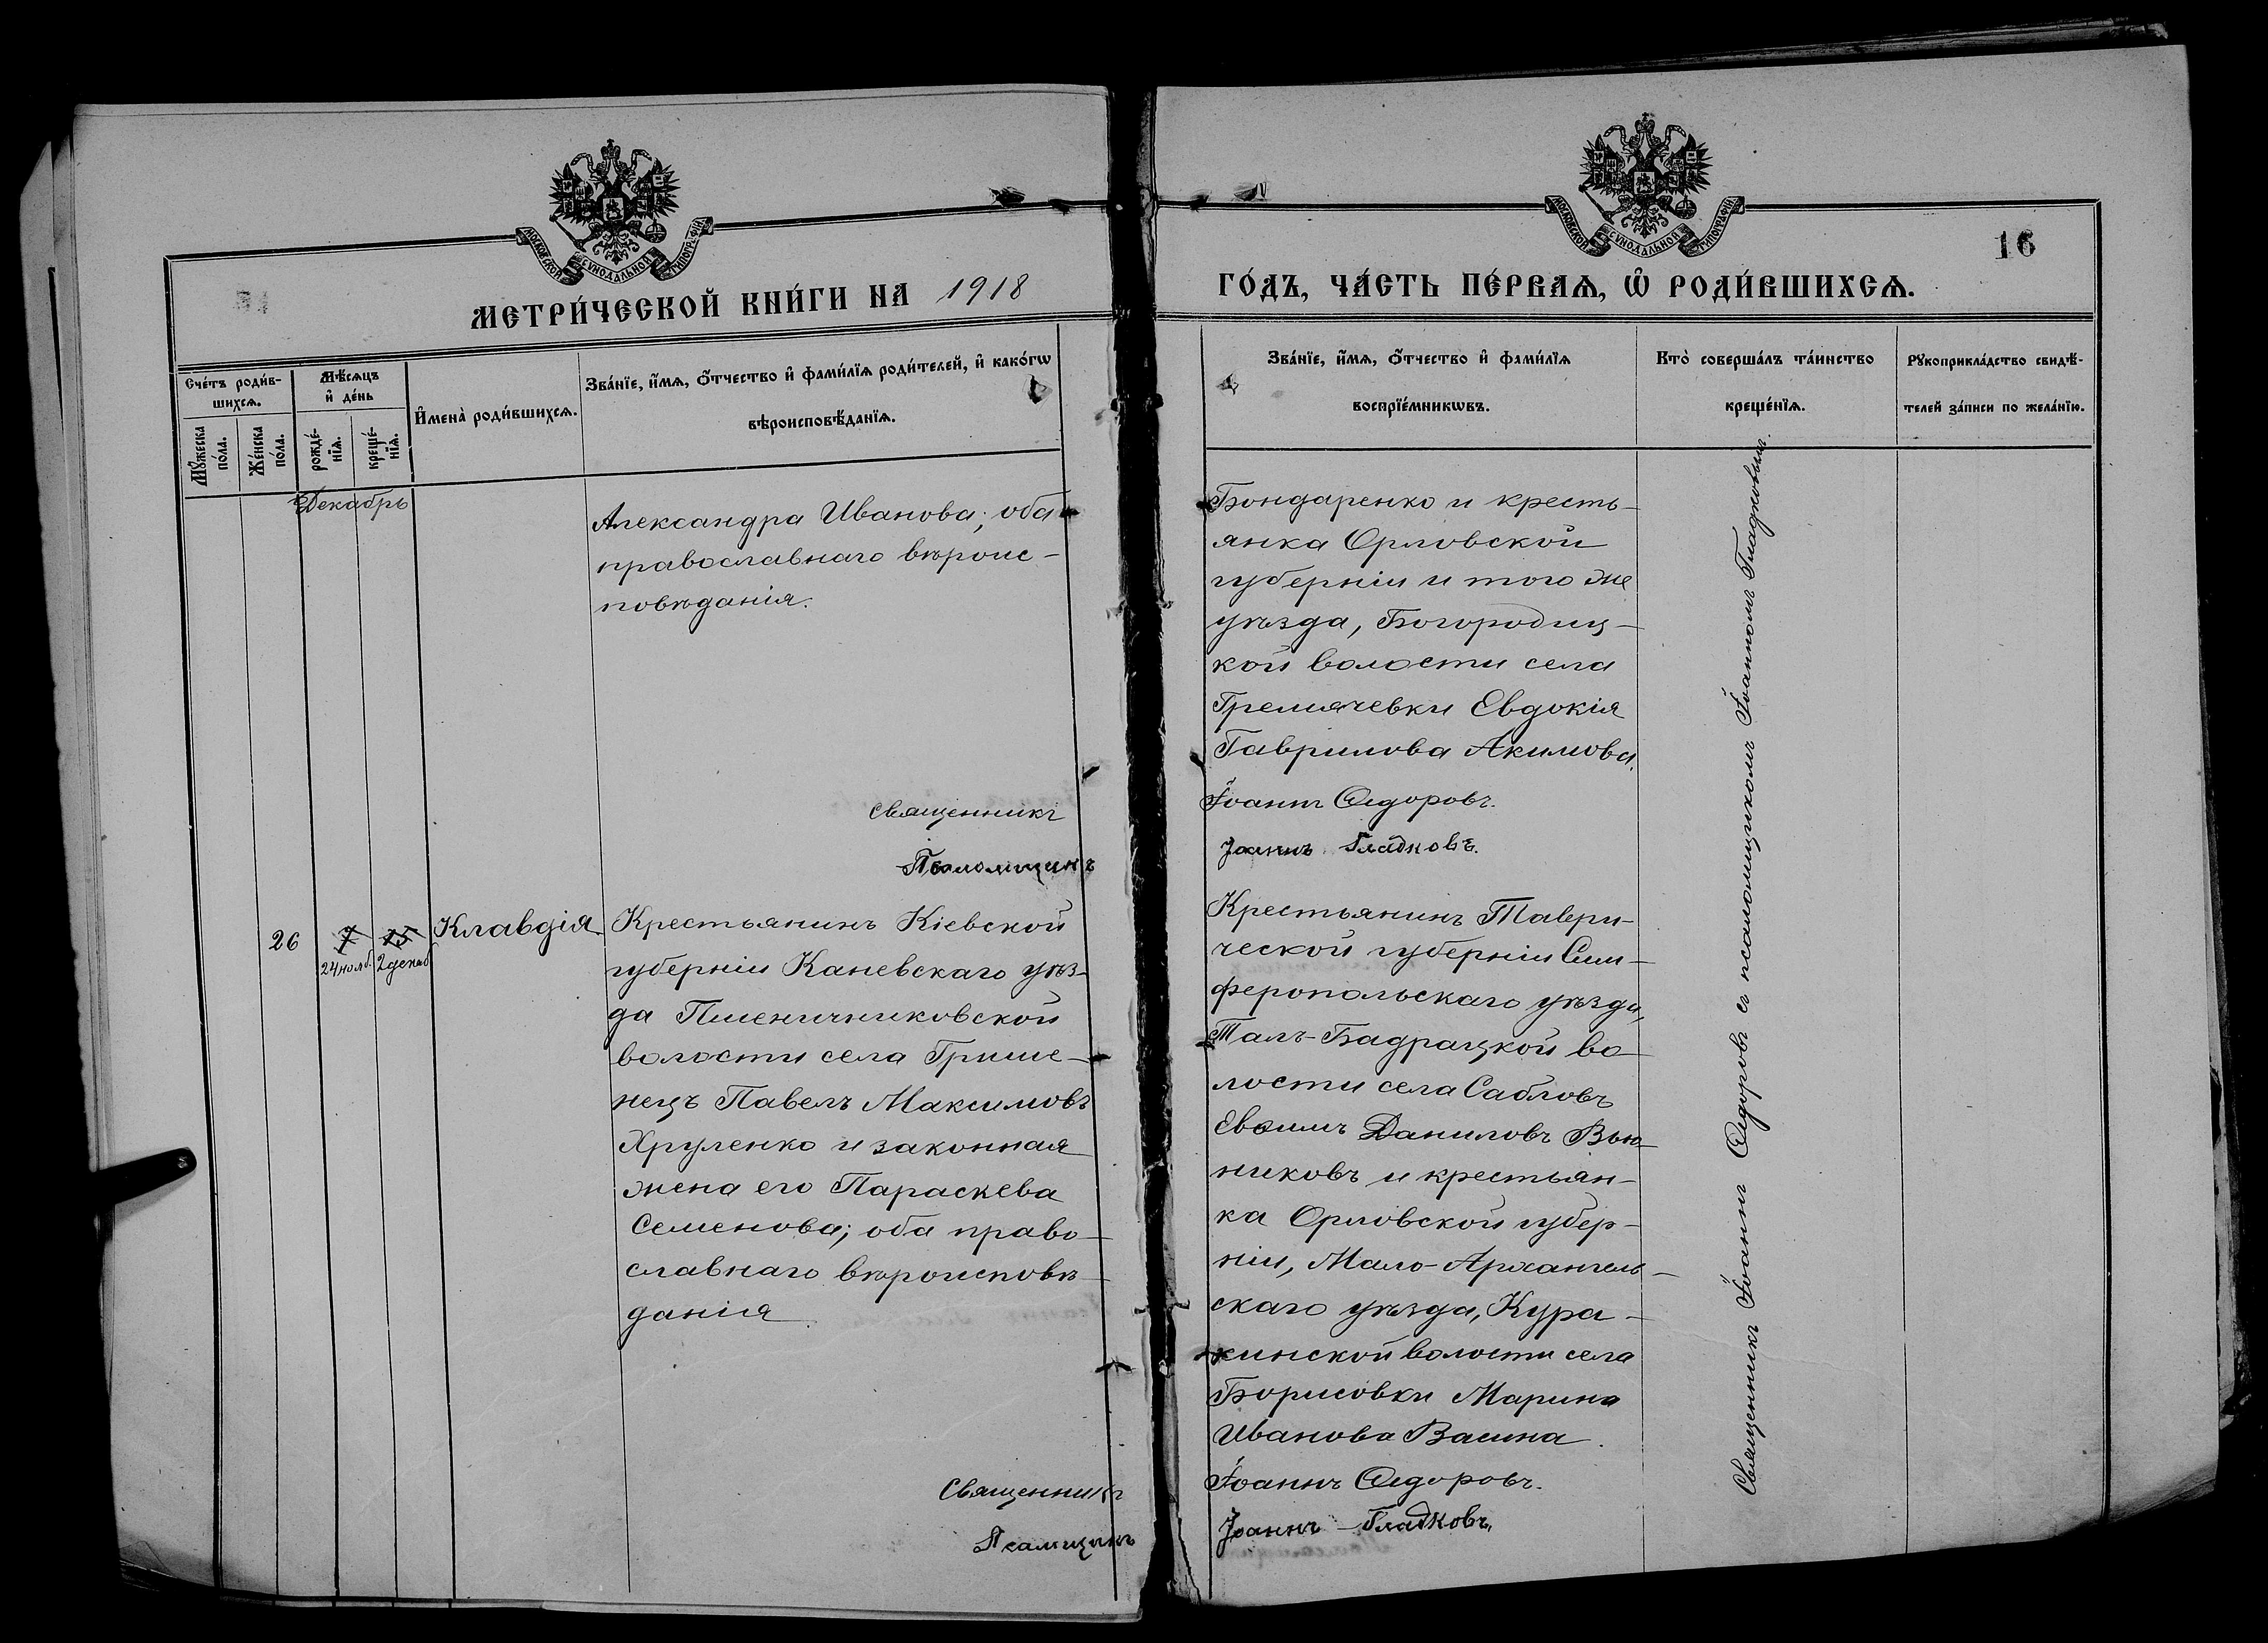 МОСКОВСКОЙ СѴНОДАЛЬНОЙ ТИПОГРАФІИ
МЕТРИ́ЧЕСКОЙ КНИ́ГИ НА 1918
Сче́тъ роди́в-
шихсѧ.
Мѣ́сѧцъ
и҆ де́нь
Мꙋ́жеска
по́ла.
Же́нска
по́ла.
рожде́-
нїѧ.
креще́-
нїѧ.
И҆мена̀ роди́вшихсѧ.
Зва́нїе, и҆́мѧ, ѻ҆́тчество и҆ фами́лїѧ роди́телей, и҆ како́гѡ
вѣроисповѣ́данїѧ.
Декабрь
Александра Иванова; оба
православнаго вѣроис-
повѣданія.
Священникъ
Псаломщикъ
26
7
15
24 нояб.
2 декаб.
Клавдія
Крестьянинъ Кіевской
губерніи Каневскаго уѣз-
да Пшеничниковской
волости села Грише-
нецъ Павелъ Максимовъ
Хруленко и законная
жена его Параскева
Семенова; оба право-
славнаго вѣроисповѣ-
данія
Священникъ
Псаломщикъ
МОСКОВСКОЙ СѴНОДАЛЬНОЙ ТИПОГРАФІИ
16
ГО́ДЪ, ЧА́СТЬ ПЕ́РВАѦ, Ѽ РОДИ́ВШИХСѦ.
Зва́нїе, и҆́мѧ, ѻ҆́тчество и҆ фами́лїѧ
воспрїе́мникѡвъ.
Кто̀ соверша́лъ та́инство
креще́нїѧ.
Рꙋкоприкла́дство свидѣ́-
телей за́писи по жела́нїю.
Бондаренко и кресть-
янка Орловской
губерніи и того же
уѣзда, Богородиц-
кой волости села
Гремячевки Евдокія
Гаврилова Акимова.
Іоаннъ Ѳедоровъ.
Іоаннъ Гладковъ.
Крестьянинъ Таври-
ческой губерніи Сим-
феропольскаго уѣзда,
Талъ-Бадрацкой во-
лости села Сабловъ
Евѳимъ Даниловъ Вью-
никовъ и крестьян-
ка Орловской губер-
ніи, Мало-Архангель-
скаго уѣзда, Кура-
кинской волости села
Борисовки Марина
Иванова Васина.
Іоаннъ Ѳедоровъ.
Іоаннъ Гладковъ.
Священникъ Іоаннъ Ѳедоровъ съ псаломщикомъ Іоанномъ Гладковымъ.